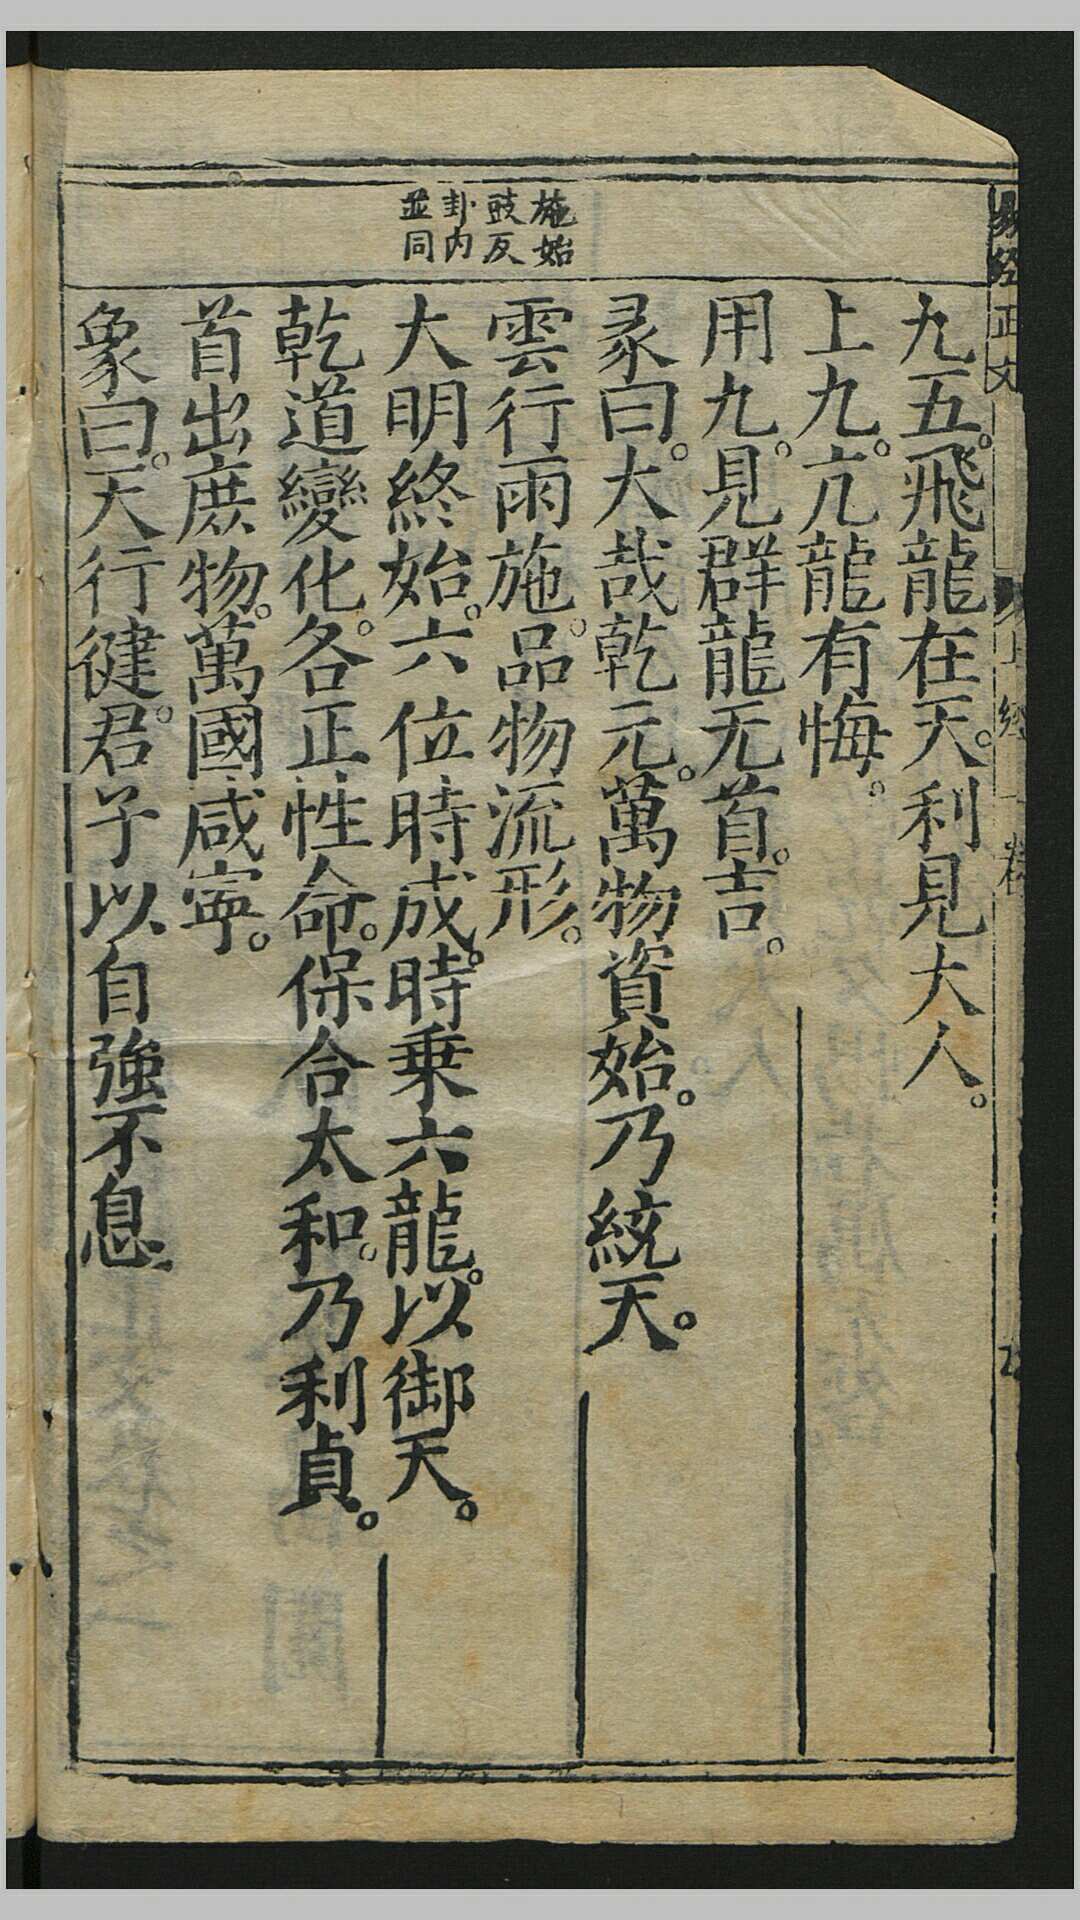 施始
豉反
卦内
並同
九五。飛龍在天。利見大人。
上九。亢龍有悔。
用九。見群龍无首。吉。
彖曰。大哉乾元。萬物資始。乃統天。
雲行雨施。品物流形。
大明終始。六位時成。時乗六龍。以御天。
乾道變化。各正性命。保合太和。乃利貞。
首出庶物。萬國咸寧。
象曰。天行健。君子以自強不息
易經正文
上經